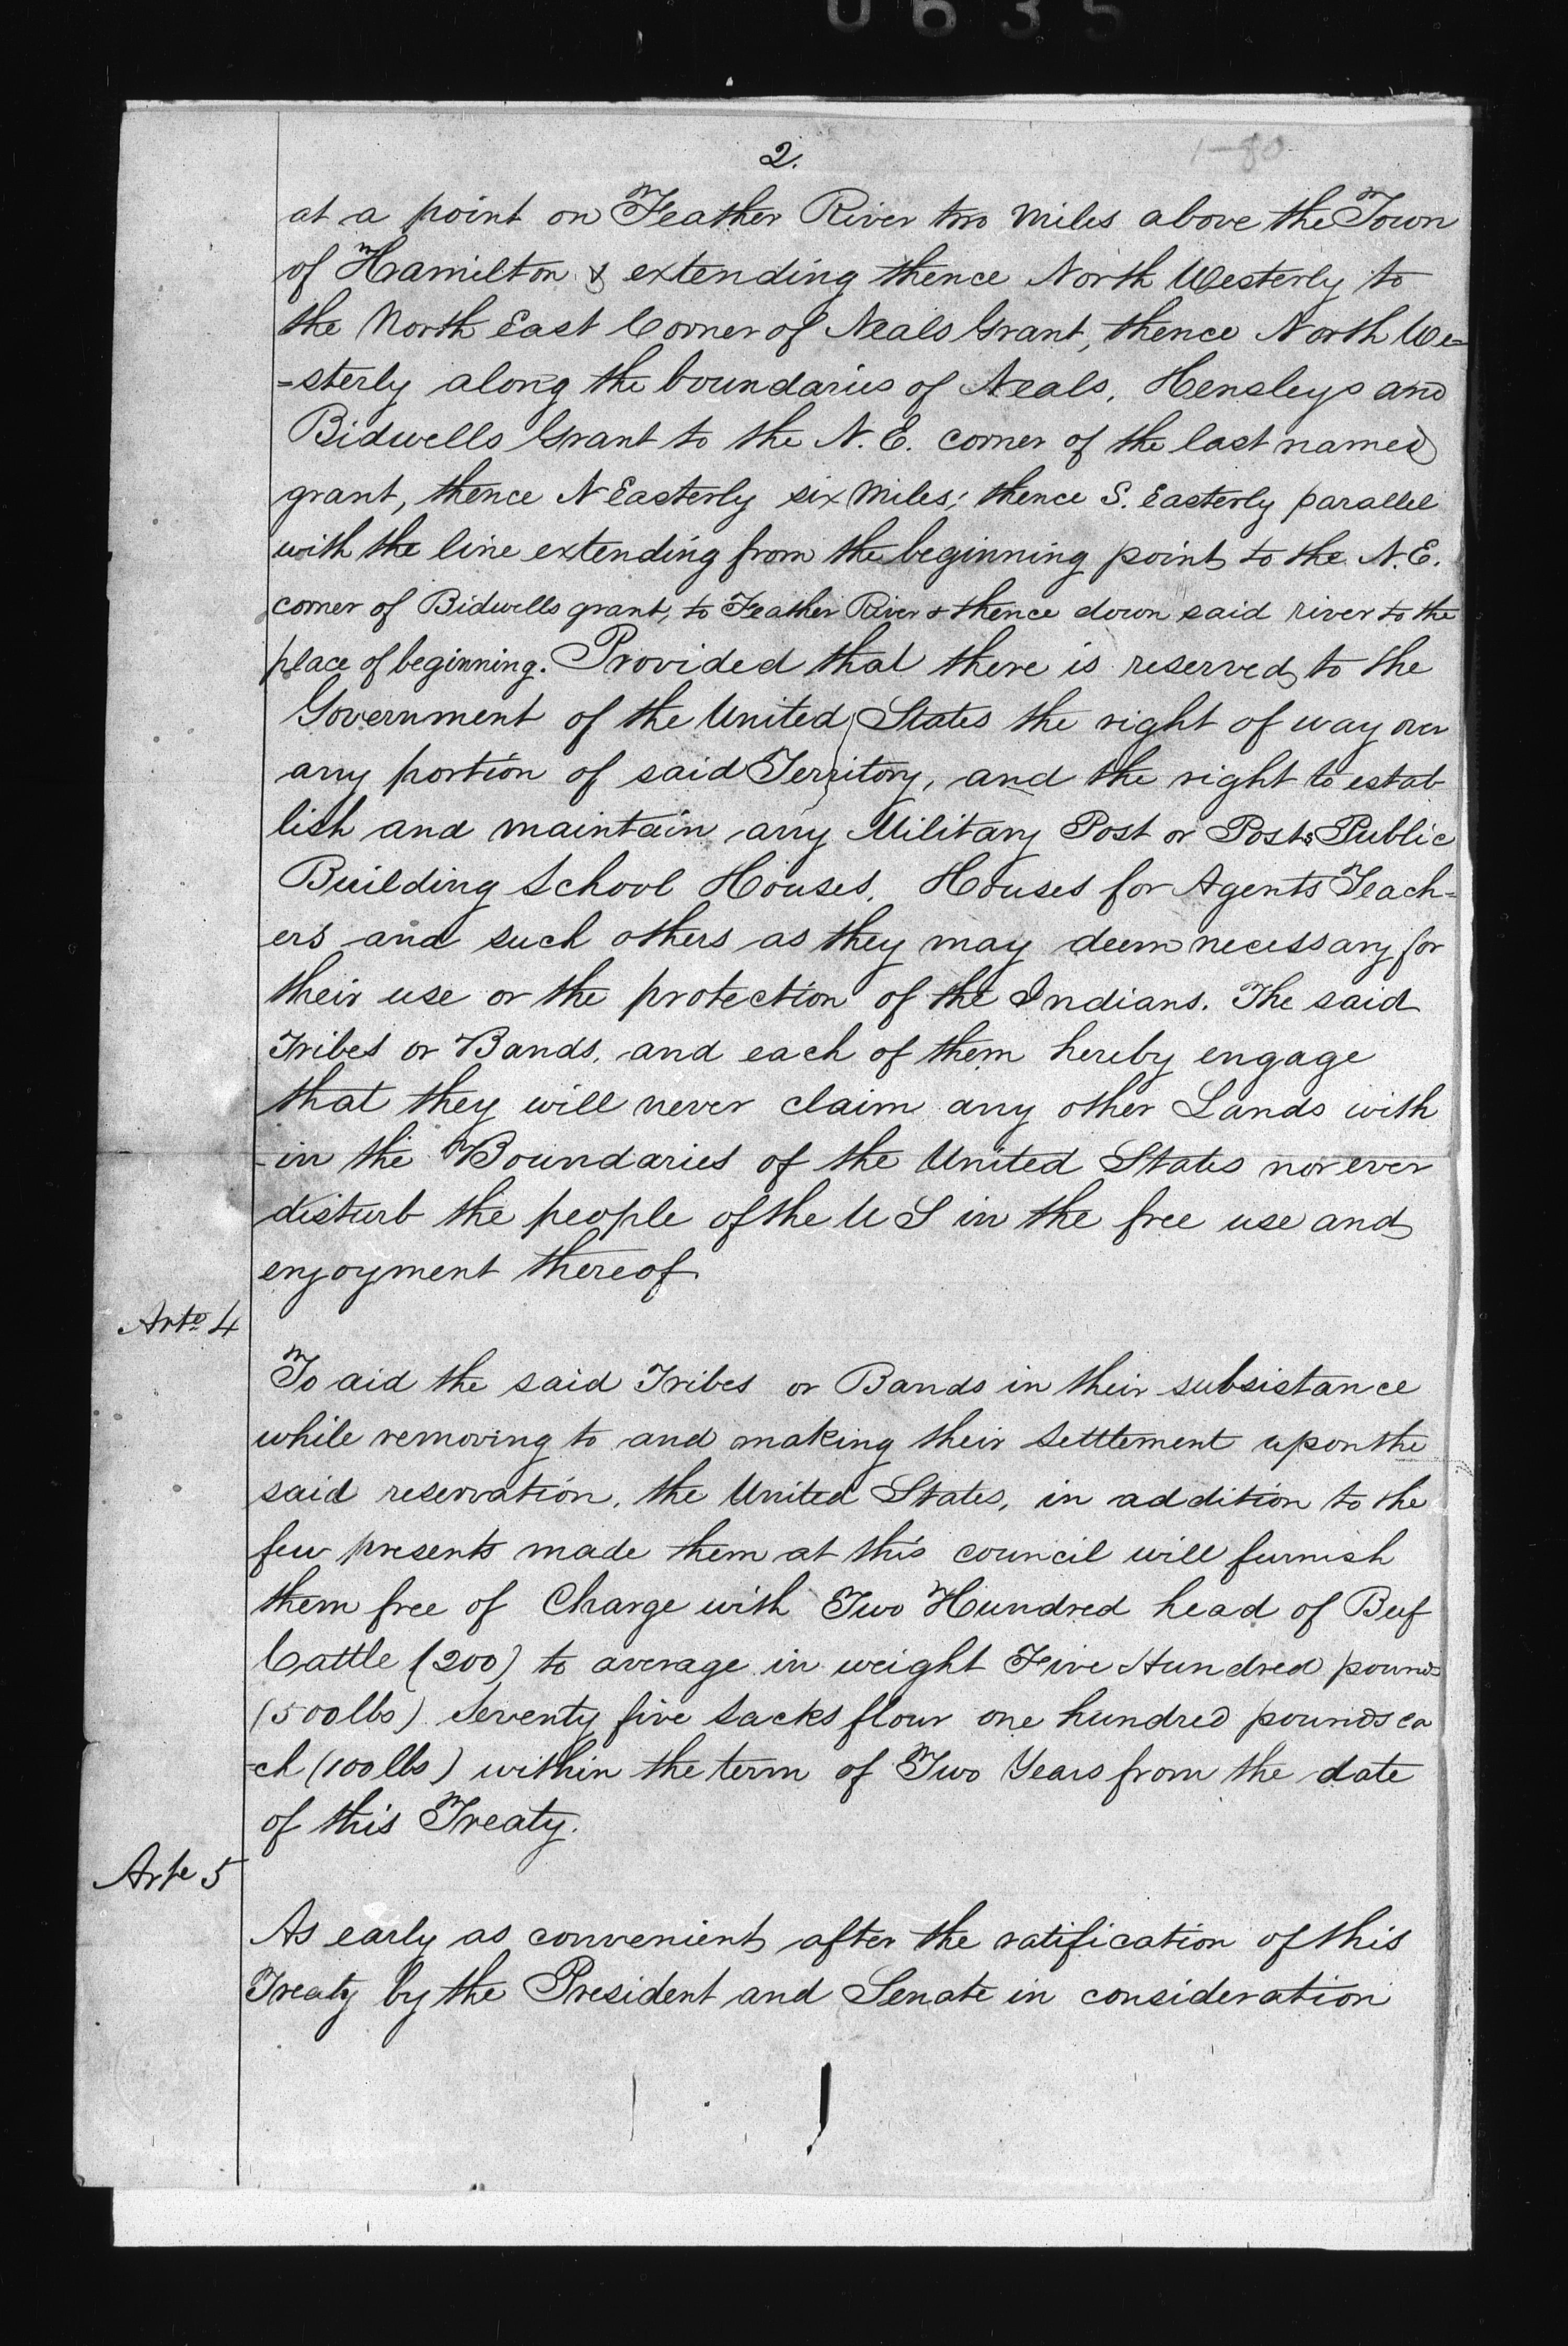 0635
1-80
2.
at a point on Feather River two miles above the Town
of Hamilton & extending thence North Westerly to
the North East Corner of Neals Grant, thence North We=
=sterly along the boundaries of Neals, Hensleys and
Bidwells Grant to the N. E. corner of the last named
grant, thence N Easterly six miles; thence S. Easterly parallel
with the line extending from the beginning point to the N. E.
corner of Bidwells grant, to Feather River & thence down said river to the
place of beginning. Provided that there is reserved to the
Government of the United States the right of way over
any portion of said Territory, and the right to estab
lish and maintain any Military Post or Posts Public
Building School Houses, Houses for Agents Teach-
ers and such others as they may deem necessary for
their use or the protection of the Indians. The said
Tribes or Bands, and each of them hereby engage
that they will never claim any other Lands with
-in the Boundaries of the United States nor ever
disturb the people of the U S in the free use and
enjoyment thereof
Arte 4
To aid the said Tribes or Bands in their subsistance
while removing to and making their settlement upon the
said reservation, the United States, in addition to the
few presents made them at this council will furnish
them free of Charge with Two Hundred head of Beef
Cattle (200) to average in weight Five Hundred pounds
(500 lbs) Seventy five sacks flour one hundred pounds ea
-ch (100 lbs) within the term of Two Years from the date
of this Treaty.
Arte 5
As early as convenient after the ratification of this
Treaty by the President and Senate in consideration